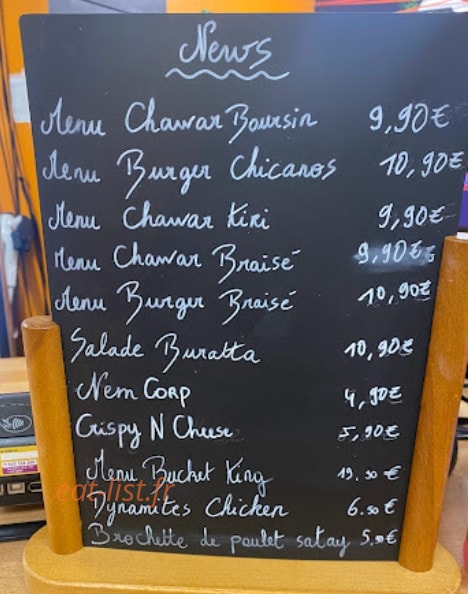 News
Menu Chawar Boursin 9,90€
Menu Burger Chicanos 10,90€
Menu Chawar Kiri 9,90€
Menu Chawar Braisé 9,90€
Menu Burger Braisé 10,90€
Salade Buratta 10,90€
Nem CORP 4,90€
Crispy N Cheese 5,90€
Menu Bucket King 19.90€
eat-list.fr
Dynamites Chicken 6.50€
Brochette de poulet satay 5.90€